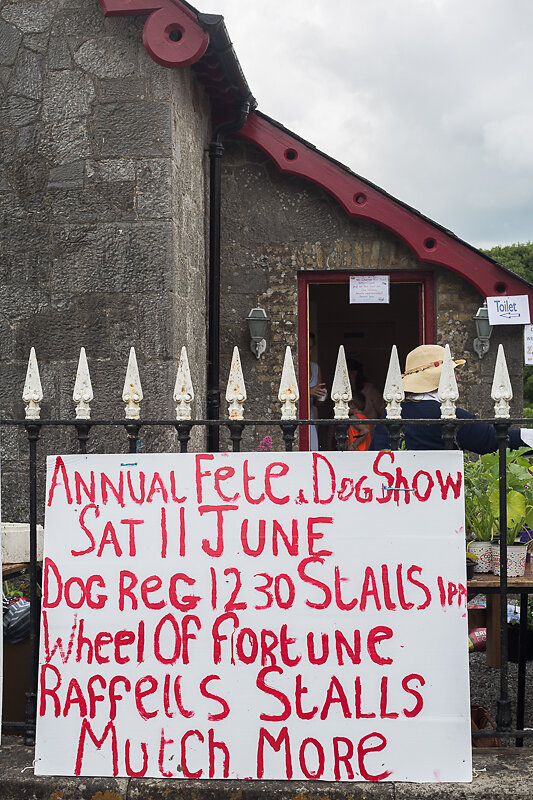 Toilet
ANNUAL FETE & DOG SHOW
SAT 11 JUNE
DOG REG 1230 STALLS 1PM
WHEEL OF FORTUNE
RAFFELLS STALLS
MUTCH MORE